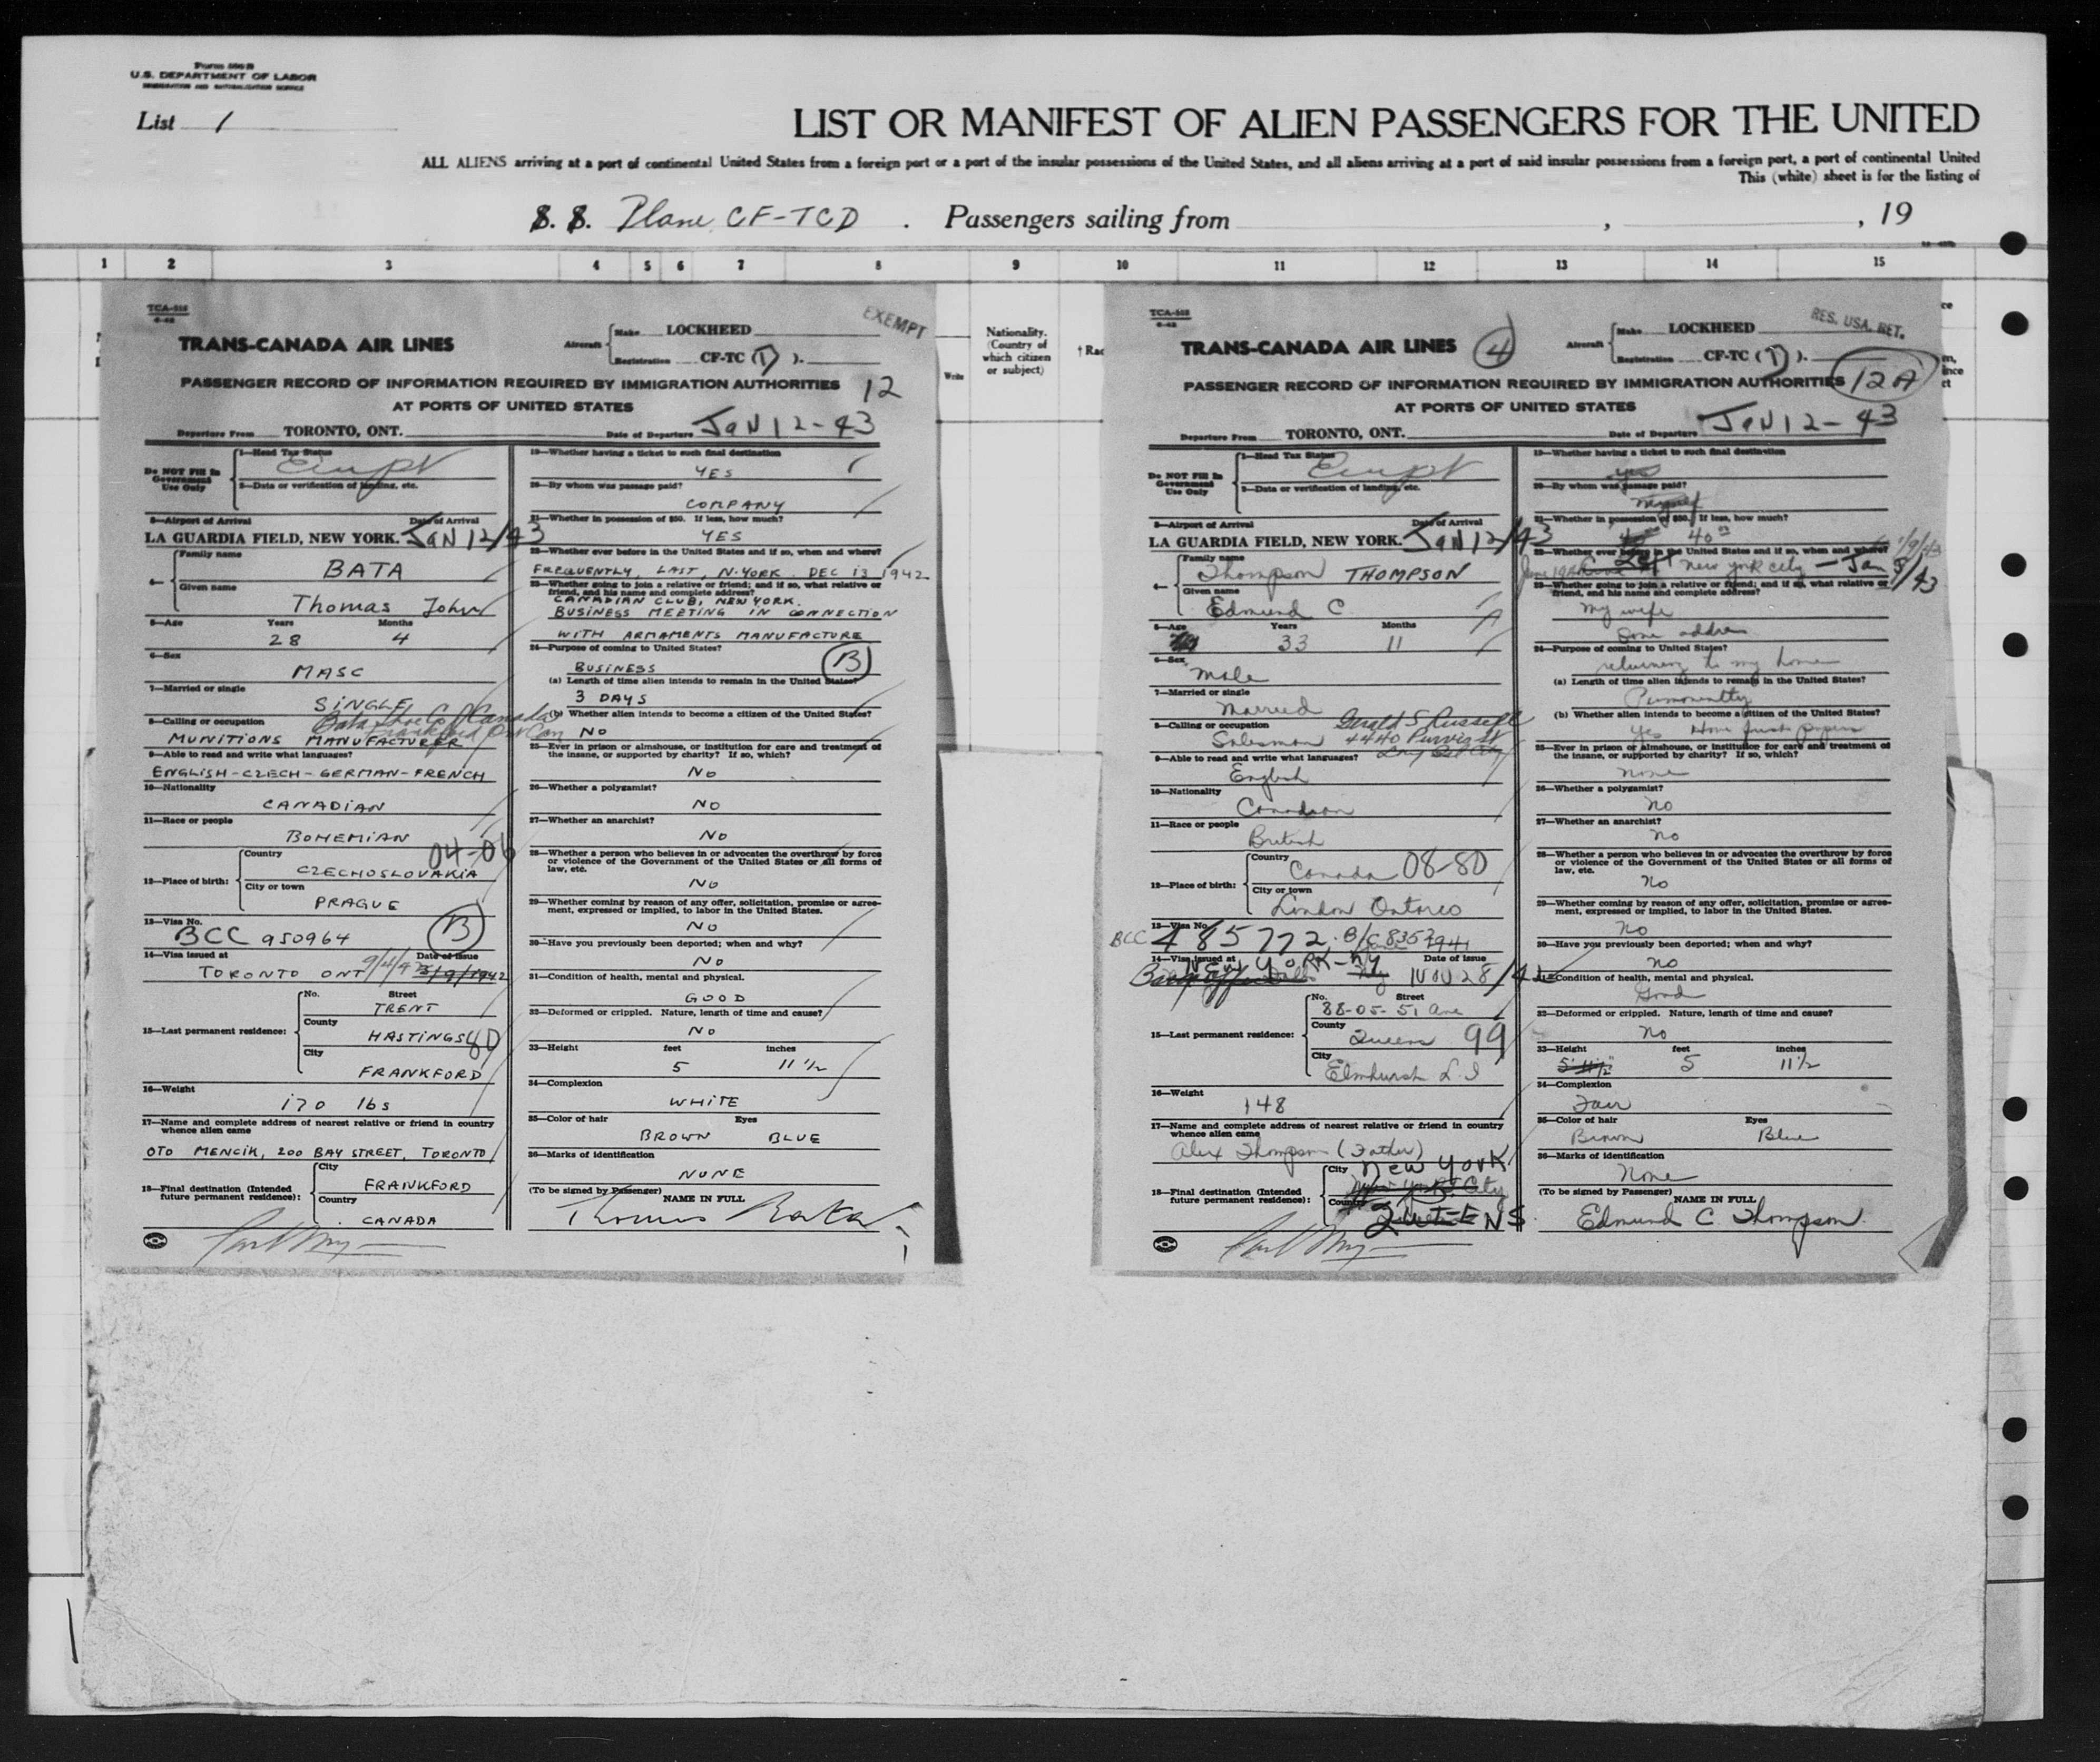 Form 500 B
U.S. DEPARTMENT OF LABOR
IMMIGRATION AND NATURALIZATION SERVICE
List 1
LIST OR MANIFEST OF ALIEN PASSENGERS FOR THE UNITED
ALL ALIENS arriving at a port of continental United States from a foreign port or a port of the insular possessions of the United States, and all aliens arriving at a port of said insular possessions from a foreign port, a port of continental United
This (white) sheet is for the listing of
S. S. Plane CF-TCD . Passengers sailing from , , 19
1 2 3 4 5 6 7 8 9 10 11 12 13 14 15
Nationality.
(Country of
which citizen
or subject)
† Rac
Write
TCA-515
EXEMPT
TRANS-CANADA AIR LINES
Aircraft Make LOCKHEED
Registration CF-TC (D).
PASSENGER RECORD OF INFORMATION REQUIRED BY IMMIGRATION AUTHORITIES 12
AT PORTS OF UNITED STATES
Departure From TORONTO, ONT. Date of Departure JAN 12-43
Do NOT Fill In
Government
Use Only
1—Head Tax Status
Exempt
2—Data or verification of landing, etc.
3—Airport of Arrival Date of Arrival
LA GUARDIA FIELD, NEW YORK. JAN 12/43
4— Family name
BATA
Given name
Thomas John
5—Age Years Months
28 4
6—Sex
MASC
7—Married or single
SINGLE
Bata Shoe Co of Canada
8—Calling or occupation Frankford Ont Can
MUNITIONS MANUFACTURER
9—Able to read and write what languages?
ENGLISH-CZECH-GERMAN-FRENCH
10—Nationality
CANADIAN
11—Race or people
BOHEMIAN
04-06
12—Place of birth: Country
CZECHOSLOVAKIA
City or town
PRAGUE
13—Visa No.
BCC 950964 B
14—Visa issued at Date of issue
TORONTO ONT 3/9/1942
15—Last permanent residence: No. Street
TRENT
County
HASTINGS 80
City
FRANKFORD
16—Weight
170 lbs
17—Name and complete address of nearest relative or friend in country
whence alien came
OTO MENCIK, 200 BAY STREET, TORONTO
18—Final destination (Intended
future permanent residence): City
FRANKFORD
Country
CANADA
19—Whether having a ticket to such final destination
YES
20—By whom was passage paid?
COMPANY
21—Whether in possession of $50. If less, how much?
YES
22—Whether ever before in the United States and if so, when and where?
FREQUENTLY, LAST, N-YORK DEC 13 1942
23—Whether going to join a relative or friend; and if so, what relative or
friend, and his name and complete address?
CANADIAN CLUB, NEW YORK.
BUSINESS MEETING IN CONNECTION
WITH ARMAMENTS MANUFACTURE
24—Purpose of coming to United States? B
BUSINESS
(a) Length of time alien intends to remain in the United States?
3 DAYS
(b) Whether alien intends to become a citizen of the United States?
NO
25—Ever in prison or almshouse, or institution for care and treatment of
the insane, or supported by charity? If so, which?
NO
26—Whether a polygamist?
NO
27—Whether an anarchist?
NO
28—Whether a person who believes in or advocates the overthrow by force
or violence of the Government of the United States or all forms of
law, etc.
NO
29—Whether coming by reason of any offer, solicitation, promise or agree-
ment, expressed or implied, to labor in the United States.
NO
30—Have you previously been deported; when and why?
NO
31—Condition of health, mental and physical.
GOOD
32—Deformed or crippled. Nature, length of time and cause?
NO
33—Height feet inches
5 11 1/2
34—Complexion
WHITE
35—Color of hair Eyes
BROWN BLUE
36—Marks of identification
NONE
(To be signed by Passenger) NAME IN FULL
Thomas Bata
TCA-515
RES. USA. RET.
TRANS-CANADA AIR LINES 4
Aircraft Make LOCKHEED
Registration CF-TC (D).
PASSENGER RECORD OF INFORMATION REQUIRED BY IMMIGRATION AUTHORITIES 12A
AT PORTS OF UNITED STATES
Departure From TORONTO, ONT. Date of Departure JAN 12-43
Do NOT Fill In
Government
Use Only
1—Head Tax Status
Exempt
2—Data or verification of landing, etc.
3—Airport of Arrival Date of Arrival
LA GUARDIA FIELD, NEW YORK. JAN 12/43
4— Family name
Thompson THOMPSON
Given name
Edmund C.
5—Age Years Months
33 11
6—Sex
Male
7—Married or single
Married
8—Calling or occupation Gerald S Russell
Salesman 4440 Purvis St
Long Isd City
9—Able to read and write what languages?
English
10—Nationality
Canadian
11—Race or people
British
12—Place of birth: Country
Canada 08-80
City or town
London Ontario
13—Visa No.
BCC 485772
14—Visa issued at Date of issue
NEW YORK-NY NOV 28/42
15—Last permanent residence: No. Street
88-05-51 Ave
County
Queens 99
City
Elmhurst L.I
16—Weight
148
17—Name and complete address of nearest relative or friend in country
whence alien came
Alex Thompson (Father)
18—Final destination (Intended
future permanent residence): City
New York
New York City
Country
QUEENS
19—Whether having a ticket to such final destination
yes
20—By whom was passage paid?
Myself
21—Whether in possession of $50. If less, how much?
40
22—Whether ever before in the United States and if so, when and where?
New York City — Jan 9/43
23—Whether going to join a relative or friend; and if so, what relative or
friend, and his name and complete address?
My wife
Same address
24—Purpose of coming to United States?
returning to my home
(a) Length of time alien intends to remain in the United States?
Permanently
(b) Whether alien intends to become a citizen of the United States?
Yes Have first papers
25—Ever in prison or almshouse, or institution for care and treatment of
the insane, or supported by charity? If so, which?
none
26—Whether a polygamist?
No
27—Whether an anarchist?
no
28—Whether a person who believes in or advocates the overthrow by force
or violence of the Government of the United States or all forms of
law, etc.
No
29—Whether coming by reason of any offer, solicitation, promise or agree-
ment, expressed or implied, to labor in the United States.
No
30—Have you previously been deported; when and why?
No
31—Condition of health, mental and physical.
Good
32—Deformed or crippled. Nature, length of time and cause?
No
33—Height feet inches
5 11 1/2
34—Complexion
Fair
35—Color of hair Eyes
Brown Blue
36—Marks of identification
None
(To be signed by Passenger) NAME IN FULL
Edmund C. Thompson